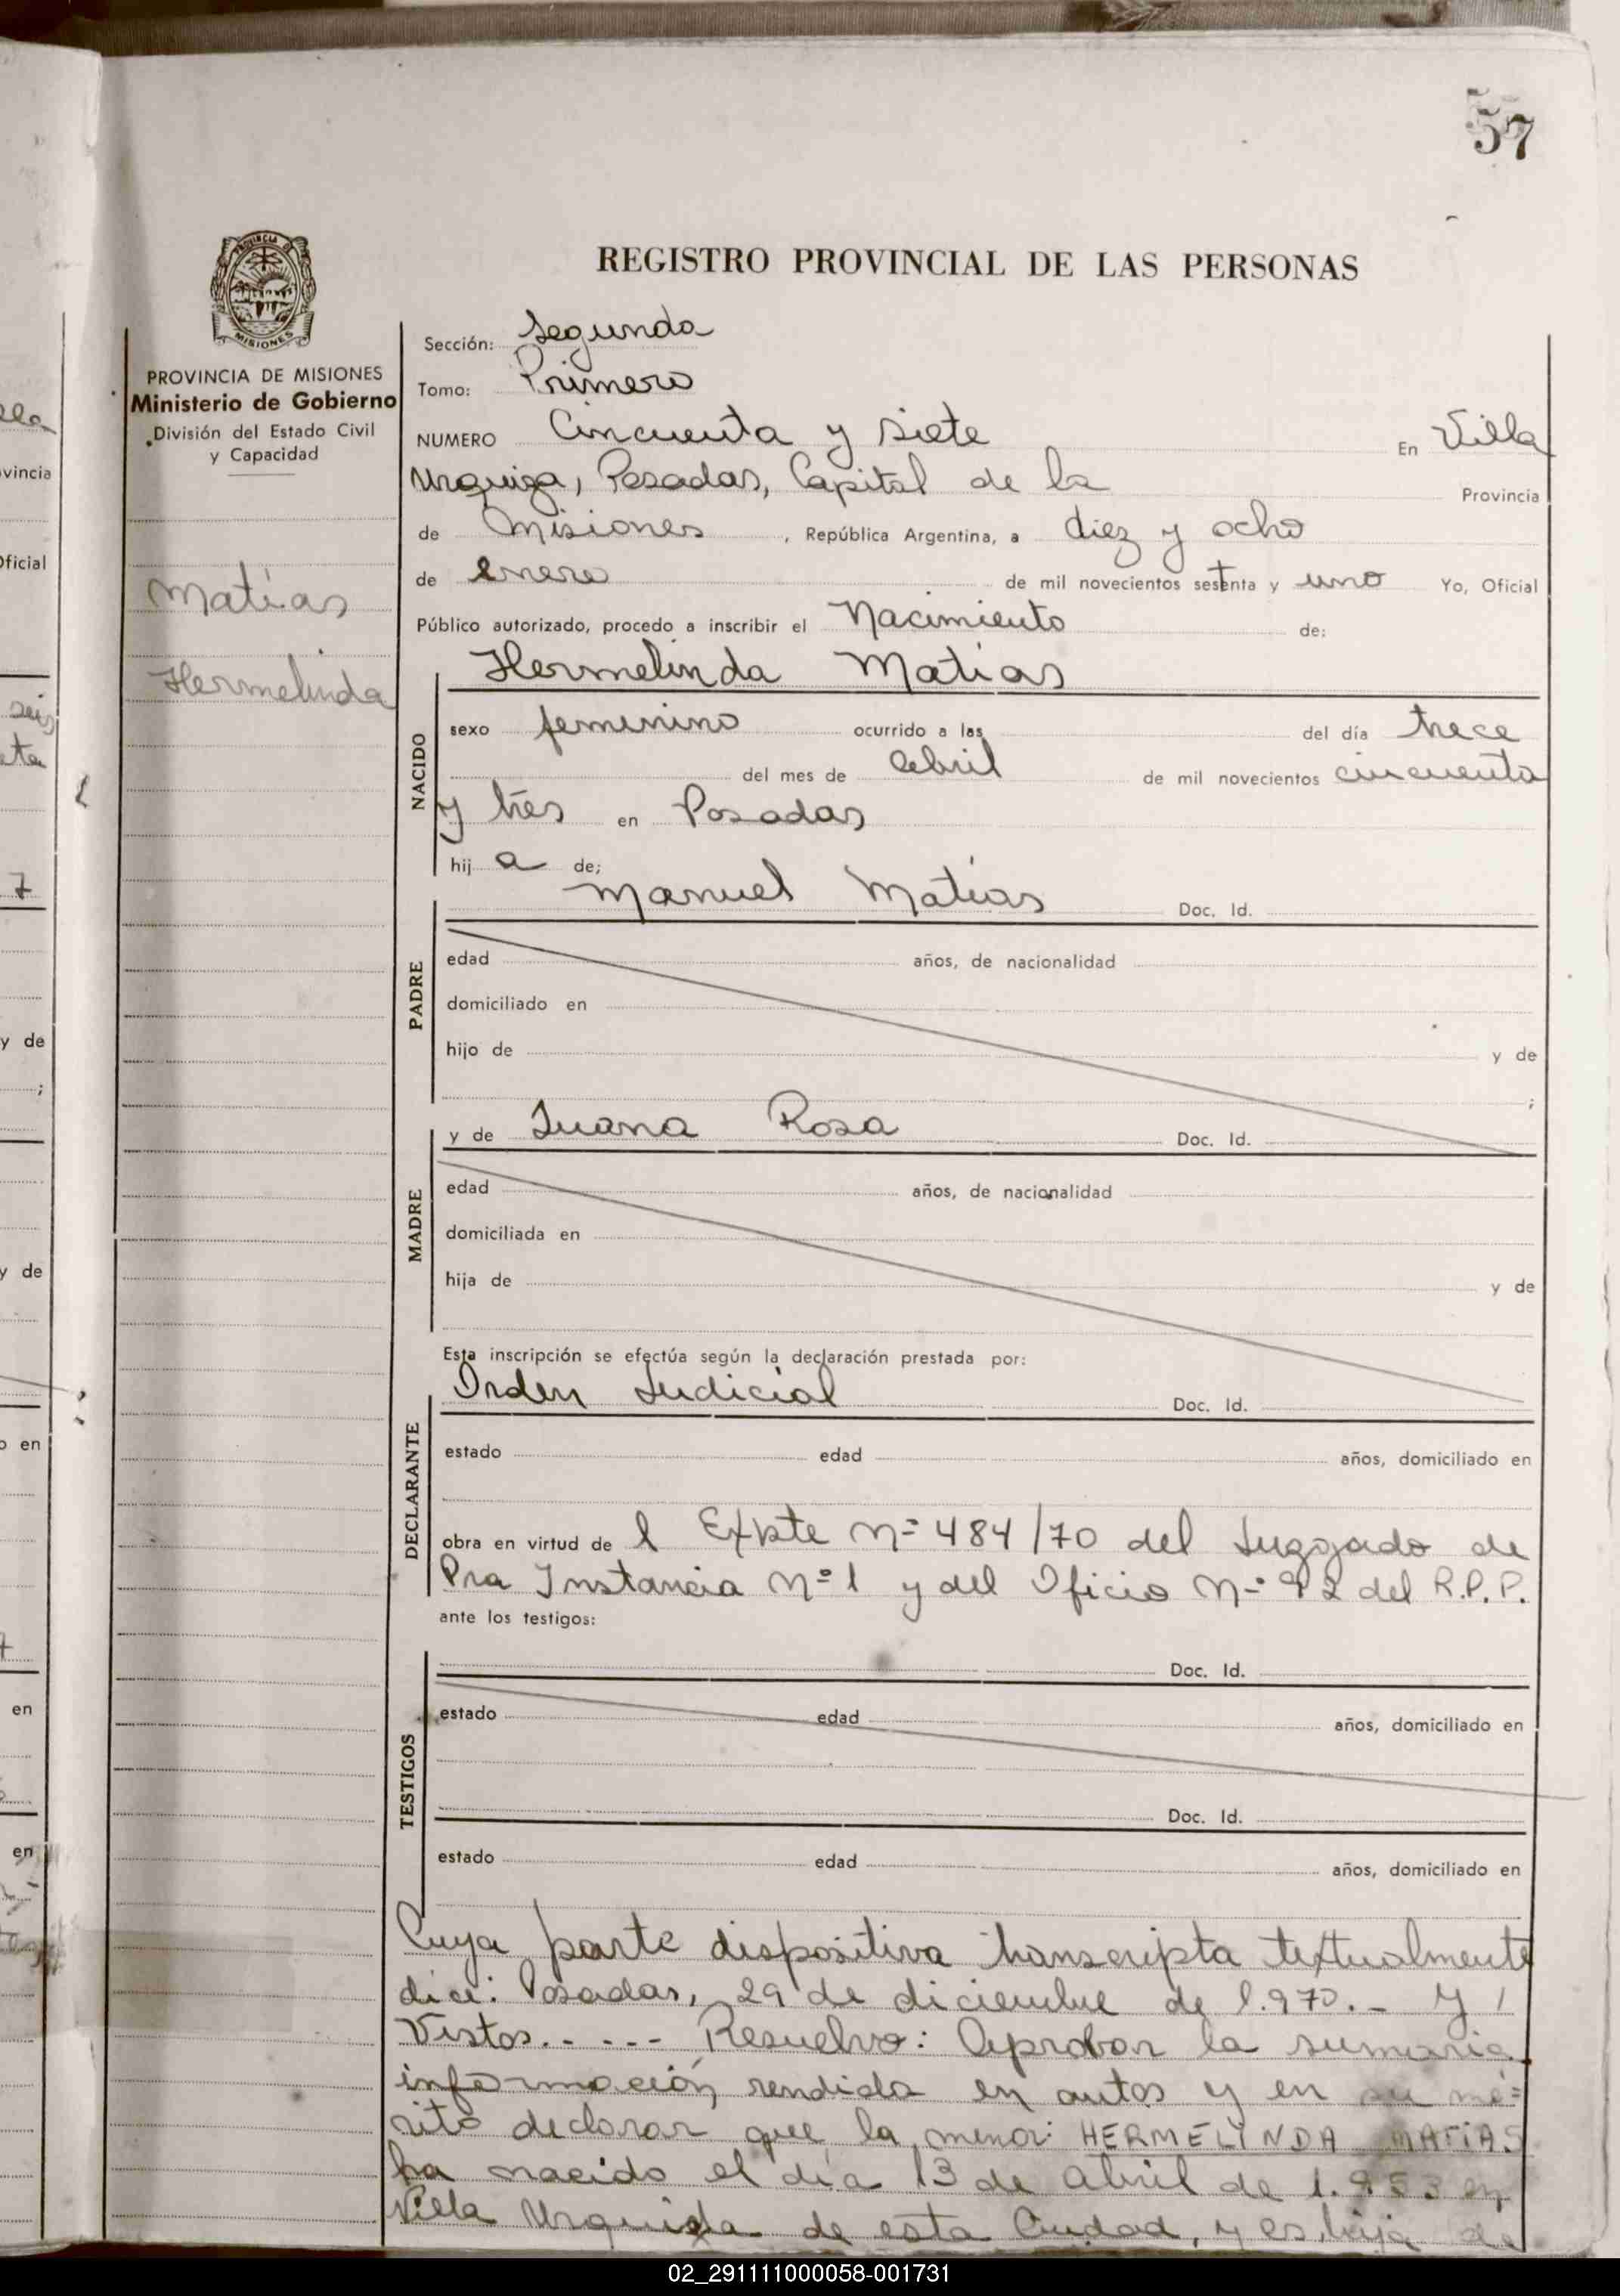 57
REGISTRO PROVINCIAL DE LAS PERSONAS
PROVINCIA DE MISIONES
Ministerio de Gobierno
División del Estado Civil
y Capacidad
Matías
Hermelinda
Sección: Segunda
Tomo: Primero
NUMERO Cincuenta y siete En Villa
Urquiza, Posadas, Capital de la Provincia
de Misiones, República Argentina, a diez y ocho
de enero de mil novecientos setenta y uno Yo, Oficial
Público autorizado, procedo a inscribir el Nacimiento de:
Hermelinda Matías
NACIDO
sexo femenino ocurrido a las del día trece
del mes de Abril de mil novecientos cincuenta
y tres en Posadas
hij a de;
Manuel Matías Doc. Id.
PADRE
edad años, de nacionalidad
domiciliado en
hijo de y de
;
y de Juana Rosa Doc. Id.
MADRE
edad años, de nacionalidad
domiciliada en
hija de y de
Esta inscripción se efectúa según la declaración prestada por:
Orden Judicial Doc. Id.
DECLARANTE
estado edad años, domiciliado en
obra en virtud de l Expte Nº 484/70 del Juzgado de
Pra Instancia Nº 1 y del Oficio Nº 92 del R.P.P.
ante los testigos:
Doc. Id.
TESTIGOS
estado edad años, domiciliado en
Doc. Id.
estado edad años, domiciliado en
Cuya parte dispositiva transcripta textualmente
dice: Posadas, 29 de diciembre de 1.970.- Y
Vistos..--- Resuelvo: Aprobar la sumaria
información rendida en autos y en su mé=
rito declarar que la menor: HERMELINDA MATIAS
ha nacido el día 13 de Abril de 1.953 en
Villa Urquiza de esta Ciudad, y es hija de
02_291111000058-001731